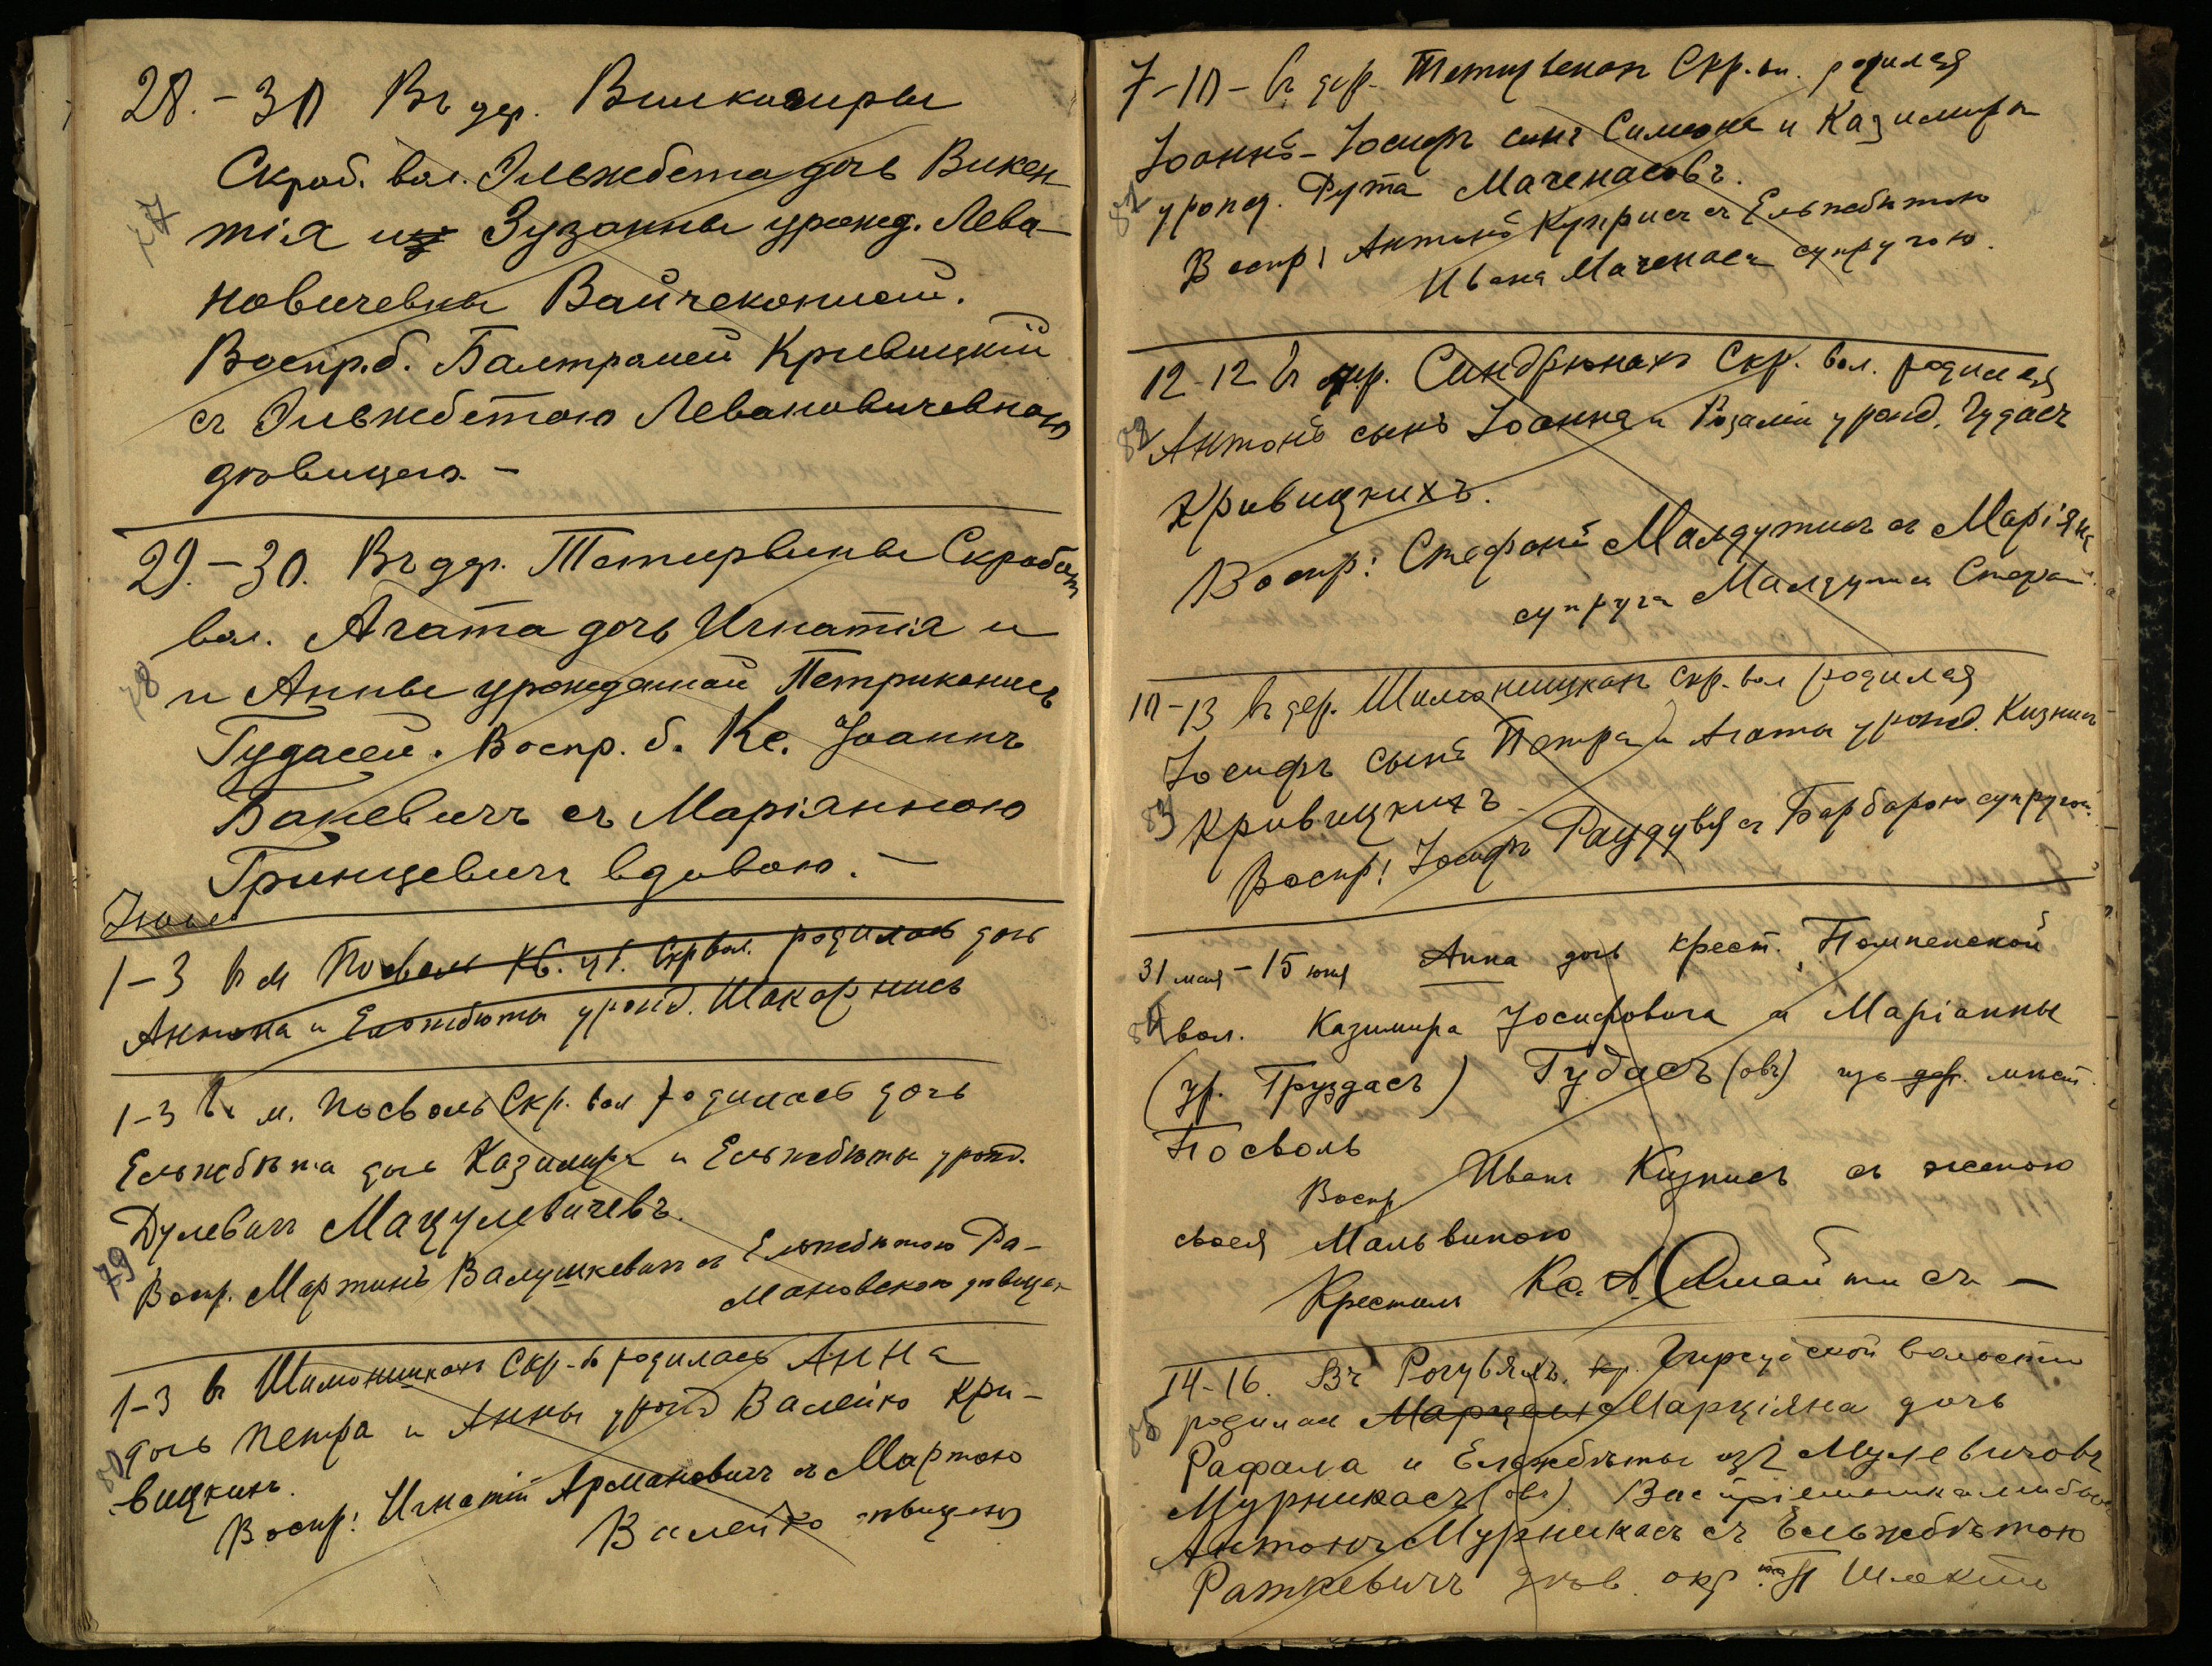 28.-30 Въ дер. Вилкасиры
Скроб. вол. Эльжбета дочь Викен-
77
тія из Зузанны урожд. Лева-
новичевны Вайчеконисъ.
Воспр. б. Балтрамей Кривицкій
съ Эльжбетою Левановичевною
дѣвицею. -
29.-30. Въ дер. Тетирвины Скробот
вол. Агата дочь Игнатія и
78
и Анны урожденной Петриконисъ
Гудасей. Воспр. б. Кс. Іоаннъ
Бакевичъ съ Маріянною
Гринцевичъ вдовою. -
Іюнь
1-3 въ м Посволь Кв. ч. Скр вол. родилась дочь
Антона и Ельжбѣты урожд. Шакарнисъ
1-3 Въ м. Посволь Скр. вол родилась дочь
Ельжбѣта дочь Казимира и Ельжбѣты урожд.
Дулевичъ Мацулевичевъ.
79
Воспр. Мартинъ Валушкевичъ съ Ельжбѣтою Ра-
мановскою дѣвицею
1-3 въ Шимонишкахъ Скр-в родилась Анна
дочь Петра и Анны урожд Валейко Кри-
80
вицкихъ.
Воспр: Игнатій Армановичъ съ Мартою
Валейко дѣвицею
7-10 - въ дер. Тетирвинахъ Скр. вл. родился
Іоаннъ-Іосифъ сынъ Симеона и Казимиры
81
урожд. Рута Маченасовъ.
Воспр: Антонъ Куприсъ съ Ельжбѣтою
Ивана Маченаса супругою.
12-12 въ дер. Синдрюнахъ Скр. вол. родился
82
Антонъ сынъ Іоанна и Розаліи урожд. Гудасъ
Кривицкихъ.
Воспр: Стефанъ Малдутисъ съ Маріяна
супруга Малдутиса Стефан.
10-13 въ дер. Шимонишкахъ Скр. вол родился
Іосифъ сынъ Петра и Агаты урожд. Кизнисъ
83
Кривицкихъ
Воспр: Іосифъ Раудувя съ Барбарою супругой
31 мая - 15 юня Анна дочь крест. Помпенской
84
вол. Казимира Іосифовича и Маріанны
(ур. Груздасъ) Гудасъ (овъ) изъ дер. мѣст.
Посволь
Воспр Иванъ Кизнисъ съ женою
своея Мальвиною
Крестилъ Кс. А. Амайтисъ -
14-16. Въ Рогувяхъ, кр. Гирсудской волости
85
родилась Марцель Марціяна дочь
Рафала и Ельжбѣты изъ Мулевичовъ
Мурникасъ (овъ). Воспріемниками были
Антонъ Мурникасъ съ Ельжбѣтою
Раткевичъ дѣв. окр.